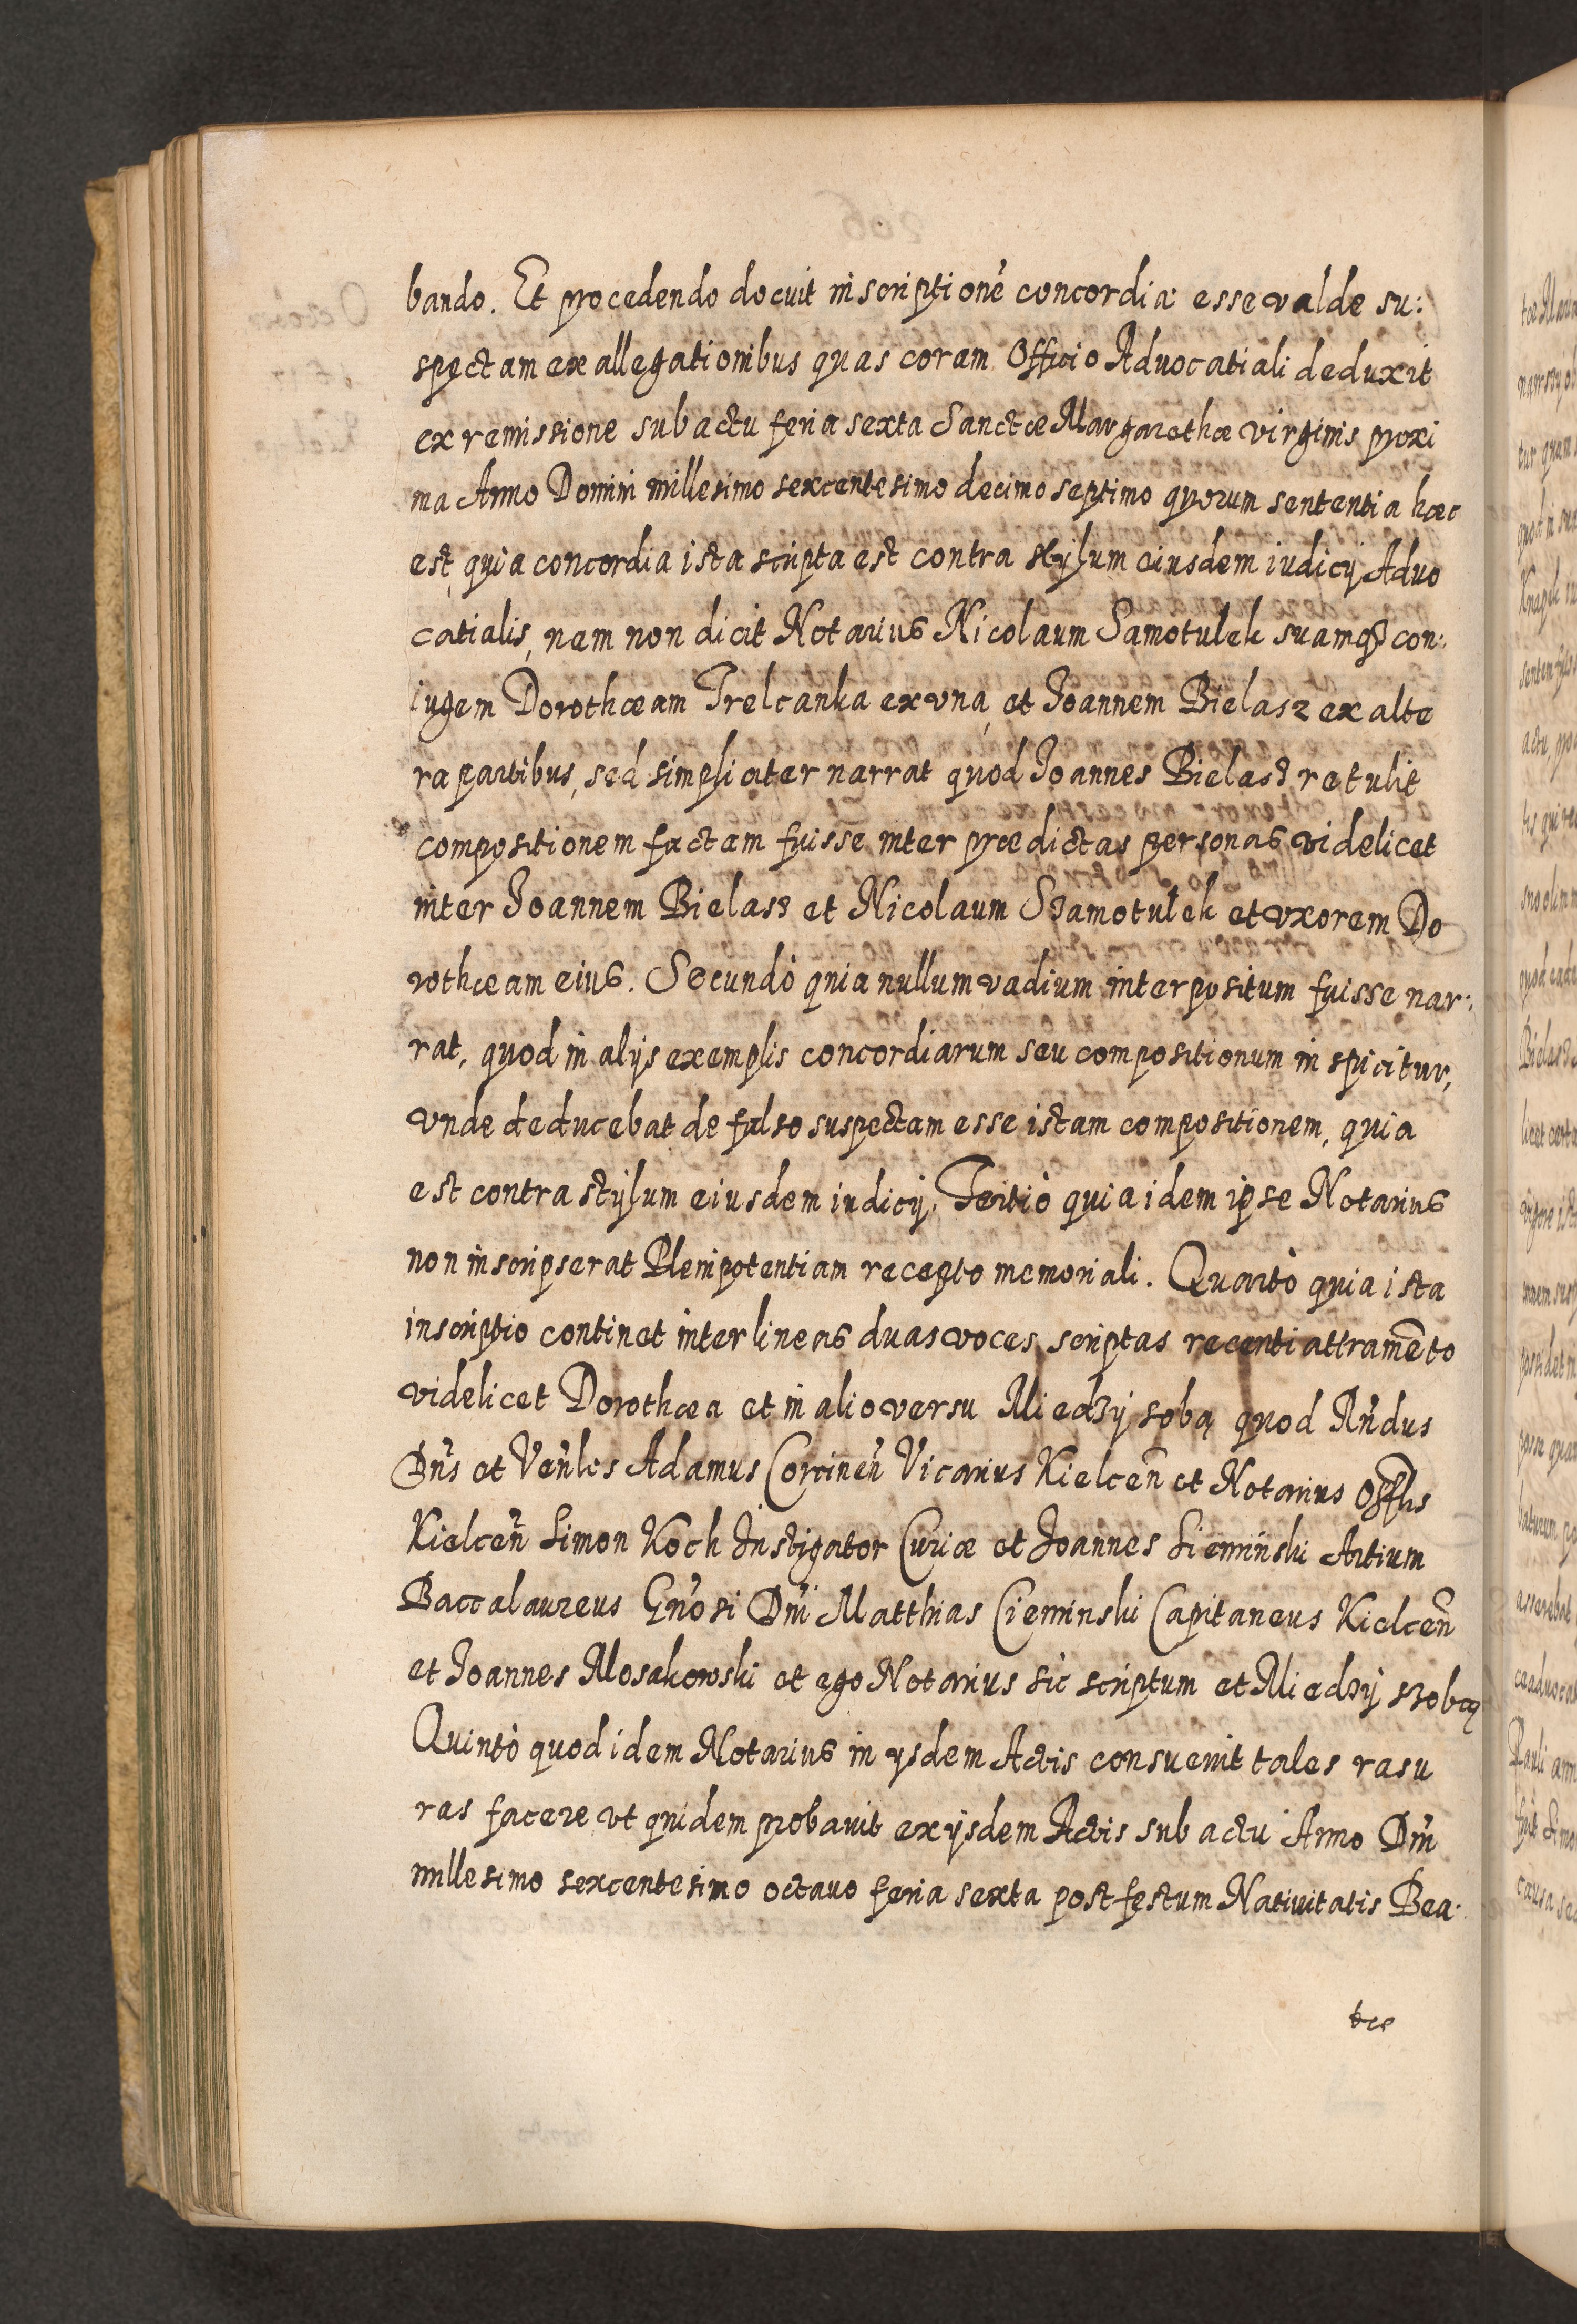 bando. Et procedendo docuit inscriptionē concordiæ esse valde su:
spectam ex allegationibus quas coram Officio Advocatiali deduxit
ex remissione sub actu feria sexta Sanctæ Margarethæ virginis proxi
ma Anno Domini millesimo sexcentesimo decimo septimo quorum sententia hæc
est, quia concordia ista scripta est contra stylum eiusdem iudicij Advo
catialis, nam non dicit Notarius Nicolaum Samotulek suamq3 con:
iugem Dorothæam Trelcanka ex vna, et Joannem Bielasz ex alte
ra partibus, sed simpliciter narrat quod Joannes Bielasz retulit
compositionem factam fuisse inter prædictas personas videlicet
inter Joannem Bielasz et Nicolaum Szamotulek et vxorem Do
rothæam eius. Secundò quia nullum vadium interpositum fuisse nar:
rat, quod in alijs exemplis concordiarum seu compositionum inspicitur,
vnde deducebat de falso suspectam esse istam compositionem, quia
est contra stylum eiusdem iudicij. Tertiò quia idem ipse Notarius
non inscripserat Plenipotentiam recepto memoriali. Quartò quia ista
inscriptio continet inter lineas duas voces scriptas recenti attramēto
videlicet Dorothæa et in alio versu Miedzy sobą quod Rñdus
Dñs et Veñles Adamus Corcineñ Vicarius Kielceñ et Notarius Offlis
Kielceñ Simon Koch Instigator Curiæ et Joannes Sieminski Artium
Baccalaureus Gñosi Dñi Matthias Cieminski Capitaneus Kielceñ
et Joannes Mosakowski et ego Notarius sic scriptum et Miedzy szobą
Quintò quod idem Notarius in ysdem Actis consuevit tales rasu
ras facere vt quidem probavit ex ijsdem Actis sub actu Anno Dñi
millesimo sexcentesimo octavo feria sexta post festum Nativitatis Bea:
tæ